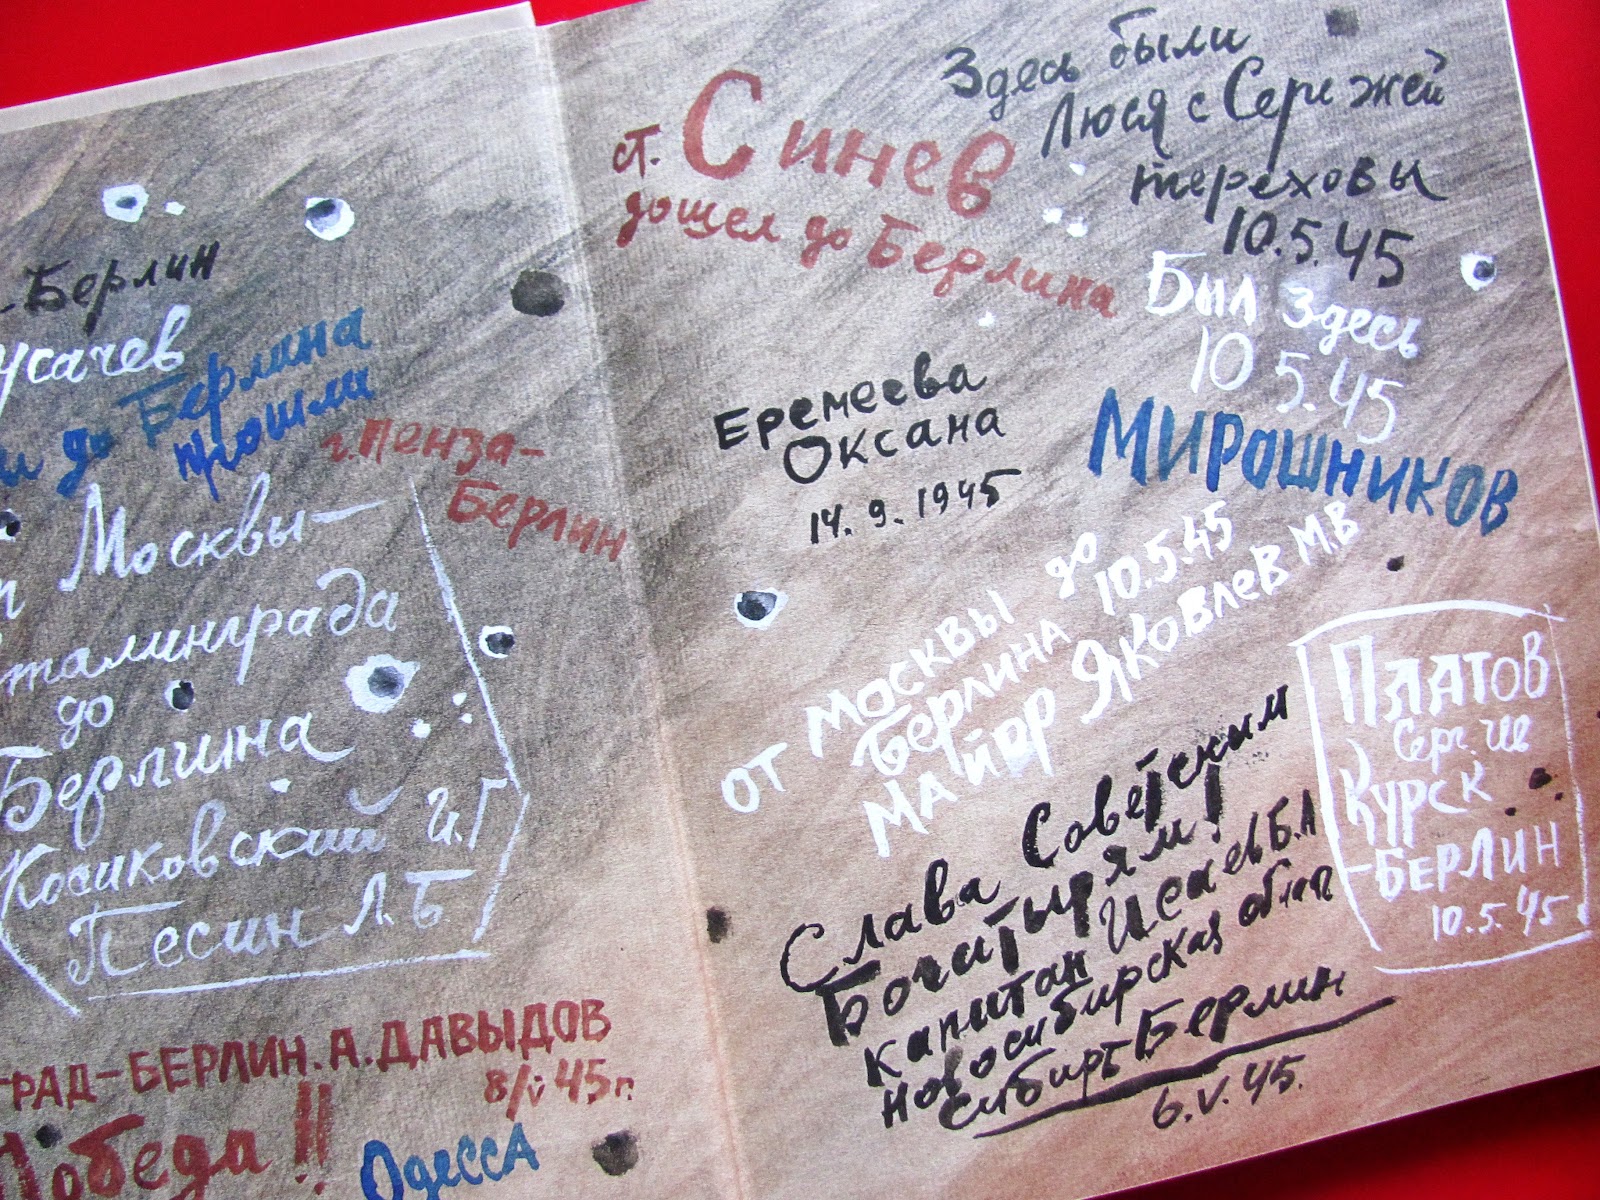 -Берлин
усачев
до Берлина
прошли
г. Пенза-
Берлин
Москвы-
талинграда
до
Берлина
Косиковский И.Г
Песин Л.Б
ГРАД-БЕРЛИН. А. ДАВЫДОВ
8/V 45 г.
Победа!!
Одесса
Здесь были
Люся с Сережей
тереховы
10.5.45
ст. Синев
дошел до Берлина
Был Здесь
10 5.45
МИРОШНИКОВ
Еремеева
Оксана
14.9.1945
от Москвы до
Берлина 10.5.45
Майор Яковлев М.В
Слава Советским
Богатырям!
капитан Исаев Б.А
новосибирская
сибирь Берлин
6.V.45.
Платов
Курск
-Берлин
10.5.45